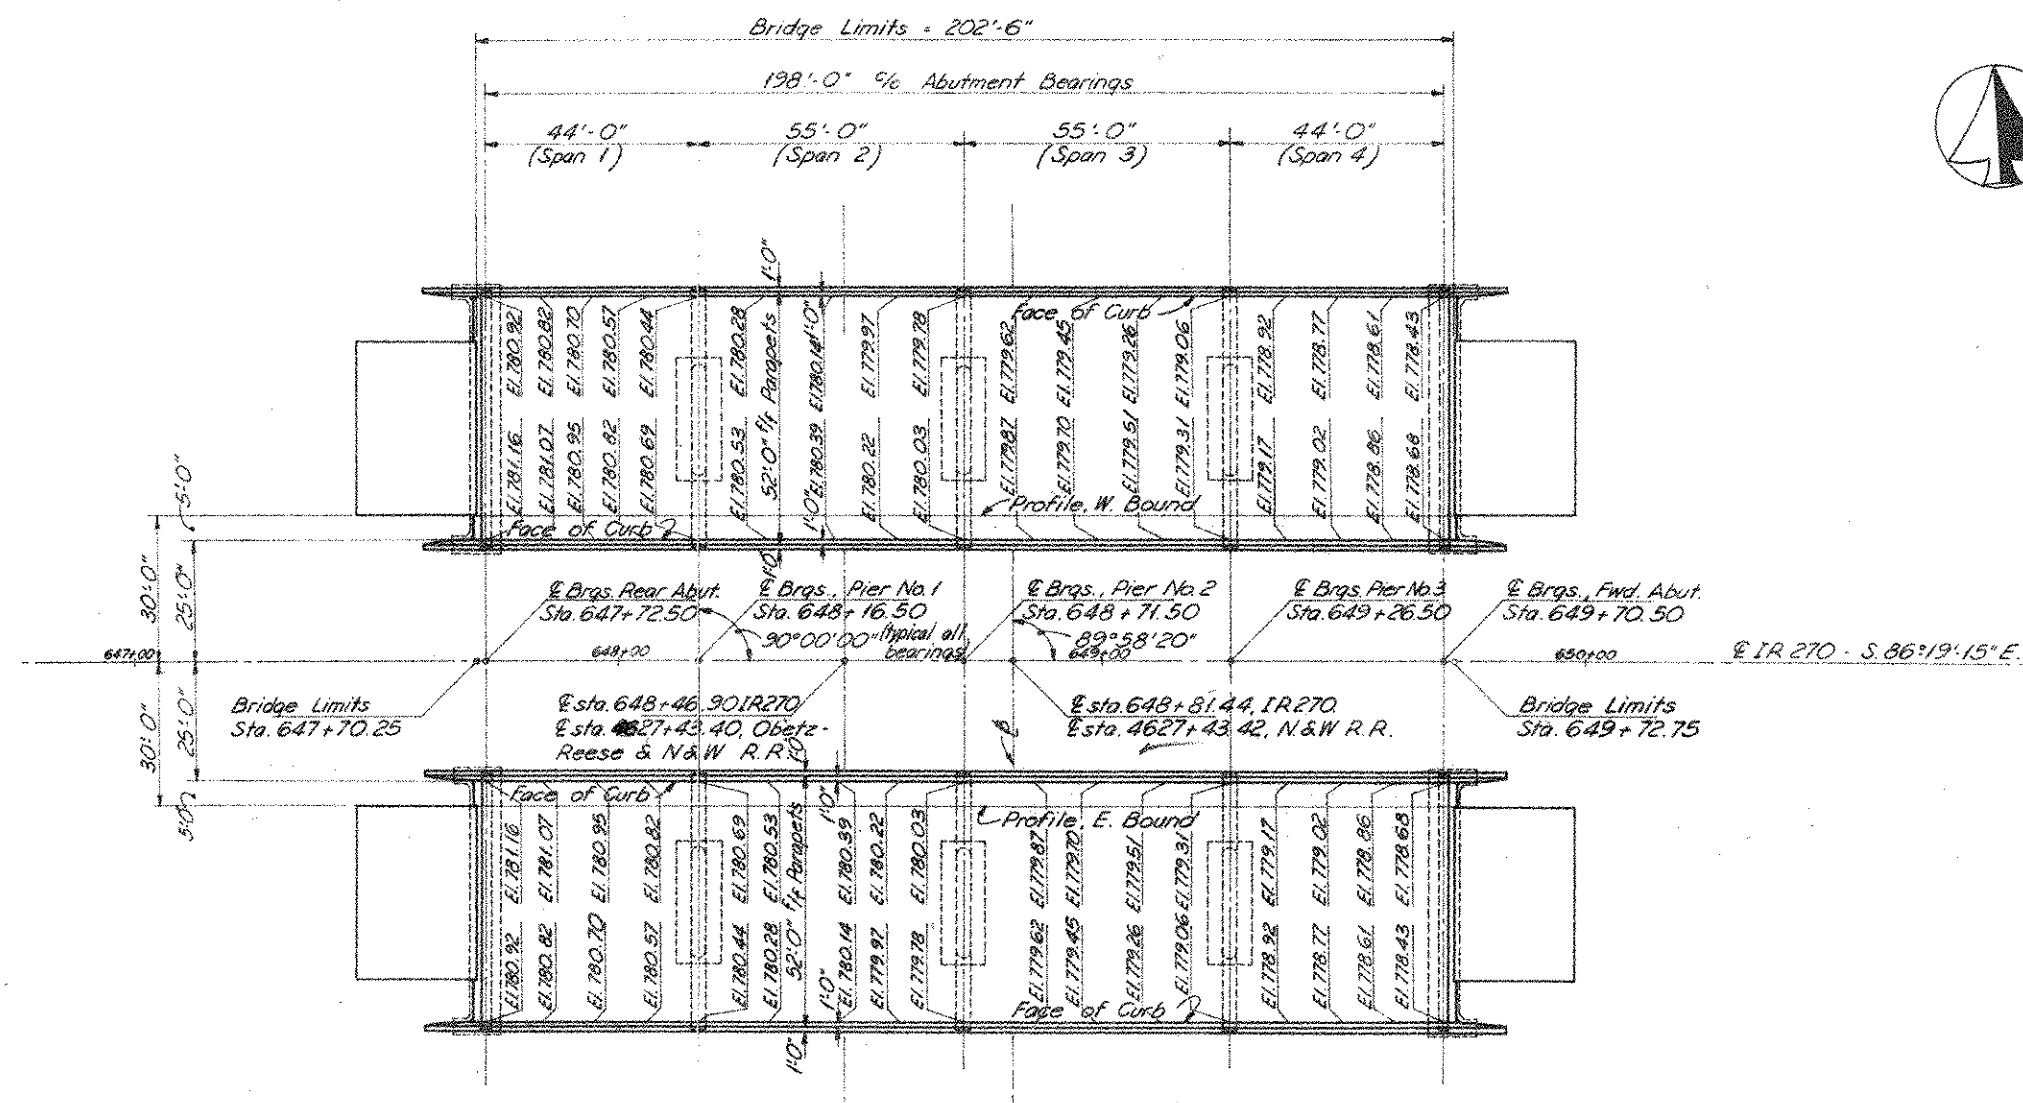 Bridge Limits = 202'-6"
198'-0" c/c Abutment Bearings
44'-0"
(Span 1)
55'-0"
(Span 2)
55'-0"
(Span 3)
44'-0"
(Span 4)
1'-0"
Face of Curb
El. 780.92
El. 780.82
El. 780.70
El. 780.57
El. 780.44
El. 780.28
52'-0" f/f Parapets
El. 780.14
1'-0"
El. 779.97
El. 779.78
El. 779.62
El. 779.45
El. 779.26
El. 779.06
El. 778.92
El. 778.77
El. 778.61
El. 778.43
El. 781.16
El. 781.07
El. 780.95
El. 780.82
El. 780.69
El. 780.53
1'-0"
El. 780.39
El. 780.22
El. 780.03
El. 779.87
El. 779.70
El. 779.51
El. 779.31
El. 779.17
El. 779.02
El. 778.86
El. 778.68
Profile, W. Bound
Face of Curb
1'-0"
5'-0"
30'-0"
25'-0"
℄ Brgs. Rear Abut.
Sta. 647+72.50
℄ Brgs., Pier No. 1
Sta. 648+16.50
℄ Brgs., Pier No. 2
Sta. 648+71.50
℄ Brgs. Pier No. 3
Sta. 649+26.50
℄ Brgs., Fwd. Abut.
Sta. 649+70.50
90°00'00" (typical all
bearings)
89°58'20"
647+00
648+00
649+00
650+00
℄ IR 270 - S. 86°19'-15" E.
Bridge Limits
Sta. 647+70.25
℄ sta. 648+46.90 IR270
℄ sta. 4627+43.40, Obetz-
Reese & N&W R.R.
℄ sta. 648+81.44, IR270.
℄ sta. 4627+43.42, N&W R.R.
Bridge Limits
Sta. 649+72.75
30'-0"
25'-0"
5'-0"
1'-0"
Face of Curb
1'-0"
Profile, E. Bound
El. 781.16
El. 781.07
El. 780.95
El. 780.82
El. 780.69
El. 780.53
52'-0" f/f Parapets
El. 780.39
El. 780.22
El. 780.03
El. 779.87
El. 779.70
El. 779.51
El. 779.31
El. 779.17
El. 779.02
El. 778.86
El. 778.68
El. 780.92
El. 780.82
El. 780.70
El. 780.57
El. 780.44
El. 780.28
1'-0"
El. 780.14
El. 779.97
El. 779.78
El. 779.62
El. 779.45
El. 779.26
El. 779.06
El. 778.92
El. 778.77
El. 778.61
El. 778.43
Face of Curb
1'-0"